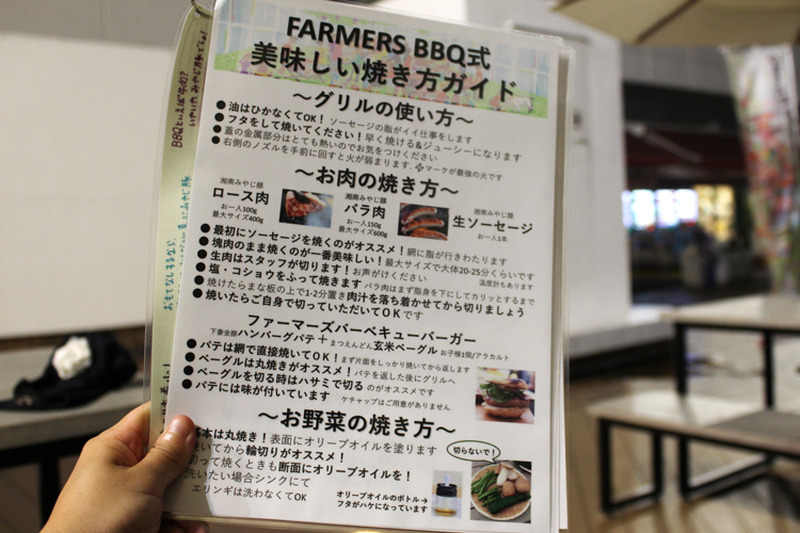 FARMERS BBQ式
美味しい焼き方ガイド
～グリルの使い方～
●油はひかなくてOK！ソーセージの脂がイイ仕事をします
●フタをして焼いてください！早く焼ける&ジューシーになります
●蓋の金属部分はとても熱いのでお気をつけください
●右側のノズルを手前に回すと火が弱まります。マークが最強の火です
～お肉の焼き方～
湘南みやじ豚
ロース肉
お一人100g
最大サイズ400g
湘南みやじ豚
バラ肉
お一人150g
最大サイズ600g
湘南みやじ豚
生ソーセージ
お一人1本
●最初にソーセージを焼くのがオススメ！網に脂が行きわたります
●塊肉のまま焼くのが一番美味しい！最大サイズで大体20-25分くらいです
●生肉はスタッフが切ります！お声がけください
温度計もあります
●塩・コショウをふって焼きます バラ肉はまず脂身を下にしてカリッとするまで
●焼けたらまな板の上で1-2分置き肉汁を落ち着かせてから切りましょう
●焼いたらご自身で切っていただいてOKです
ファーマーズバーベキューバーガー
下妻金融ハンバーグパテ＋まつえんどん玄米ベーグル お子様1個/アラカルト
●パテは網で直接焼いてOK！まず片面をしっかり焼いてから返します
●ベーグルは丸焼きがオススメ！パテを返した後にグリルへ
●ベーグルを切る時はハサミで切る のがオススメです
●パテには味が付いています ケチャップはご用意がありません
～お野菜の焼き方～
基本は丸焼き！表面にオリーブオイルを塗ります
焼いてから輪切りがオススメ！
切って焼くときも断面にオリーブオイルを！
洗いたい場合シンクにて
エリンギは洗わなくてOK
切らないで！
オリーブオイルのボトル→
フタがハケになっています
BBQといえば牛肉？
いやいや みやじ豚でしょ！
おもてなしするなら、